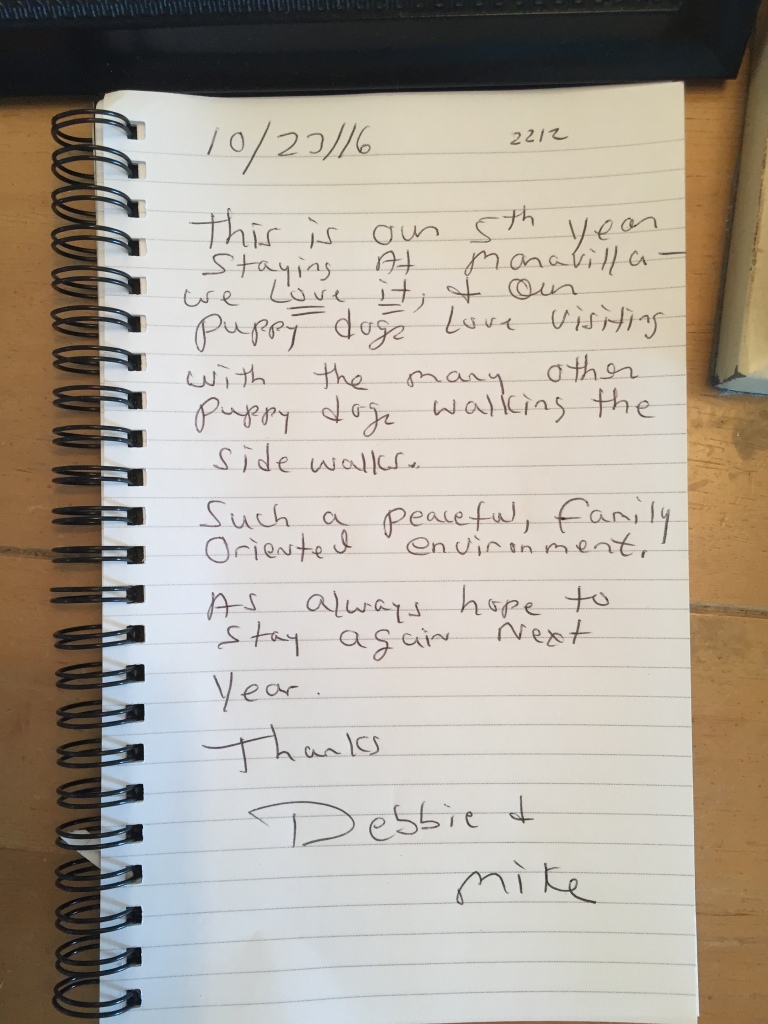 10/23/16 2212
This is our 5th year
Staying At Maravilla -
we Love it, & our
puppy dogs Love visiting
with the many other
puppy dogs walking the
side walks.
Such a peaceful, family
Oriented environment.
As always hope to
stay again Next
Year.
Thanks
Debbie &
Mike